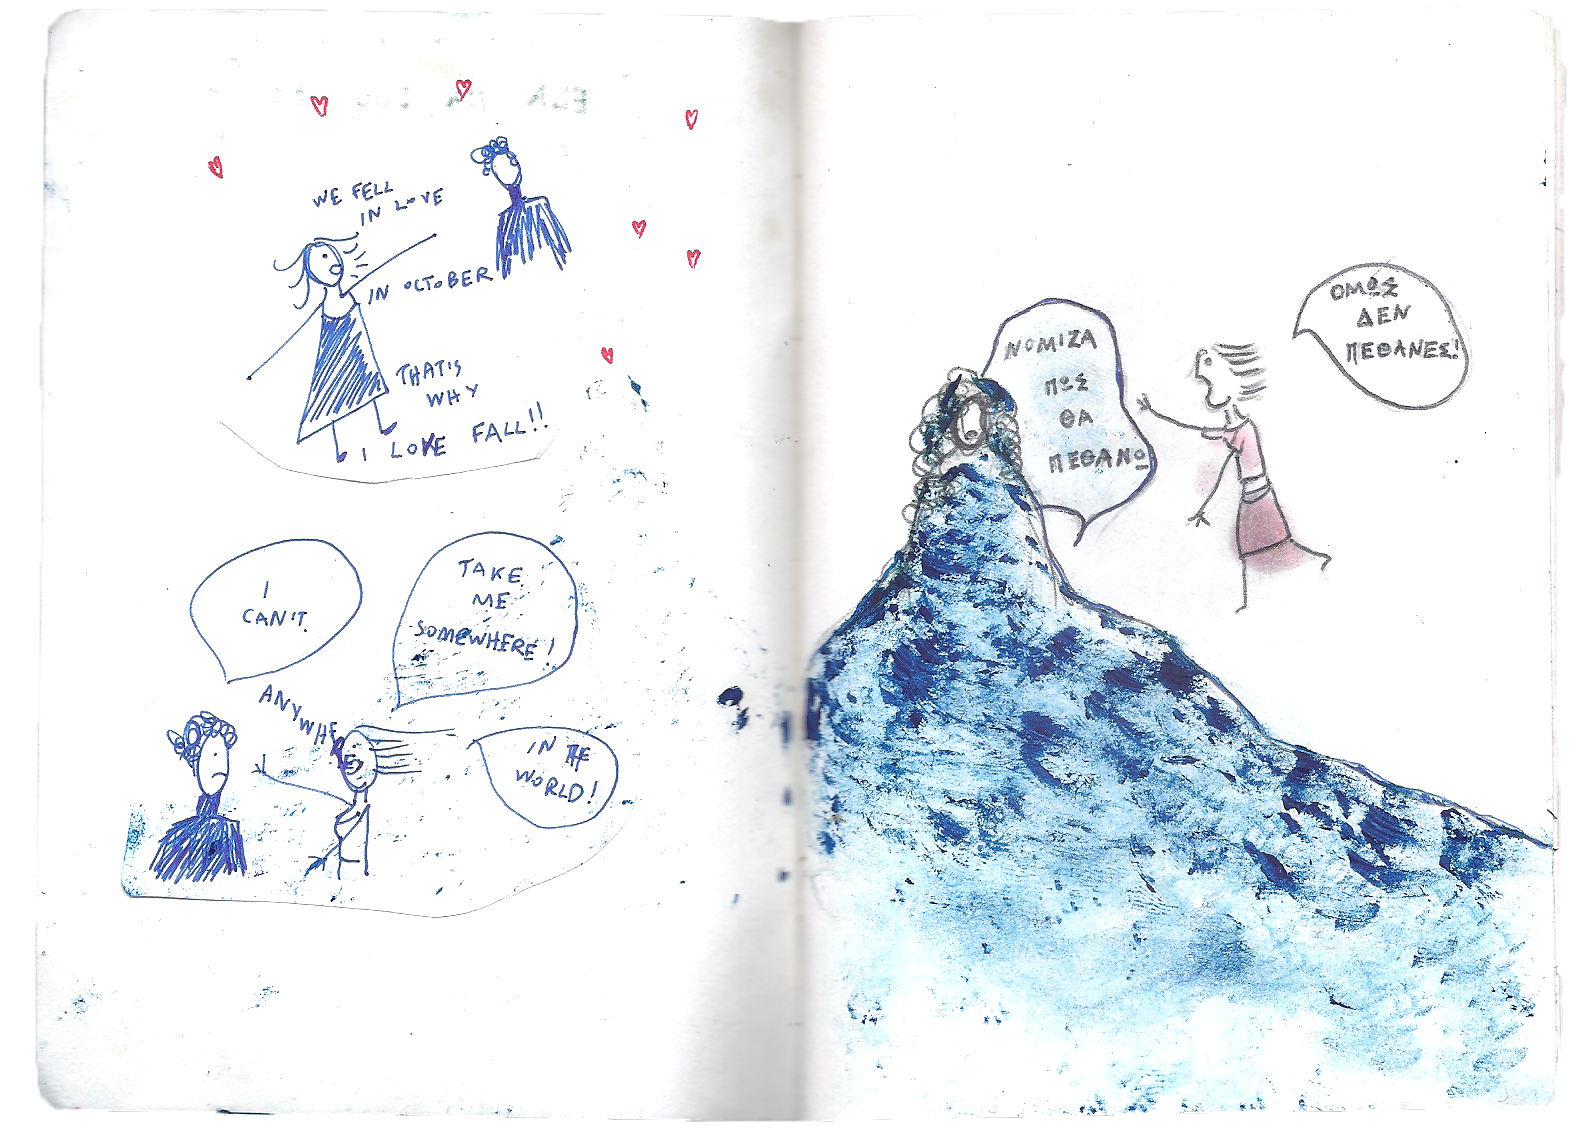 WE FELL
IN LOVE
IN OCTOBER
THAT'S
WHY
I LOVE FALL!!
I
CAN'T.
TAKE
ME
SOMEWHERE!
ANYWHERE
IN THE
WORLD!
ΝΟΜΙΖΑ
ΠΩΣ
ΘΑ
ΠΕΘΑΝΩ
ΟΜΩΣ
ΔΕΝ
ΠΕΘΑΝΕΣ!